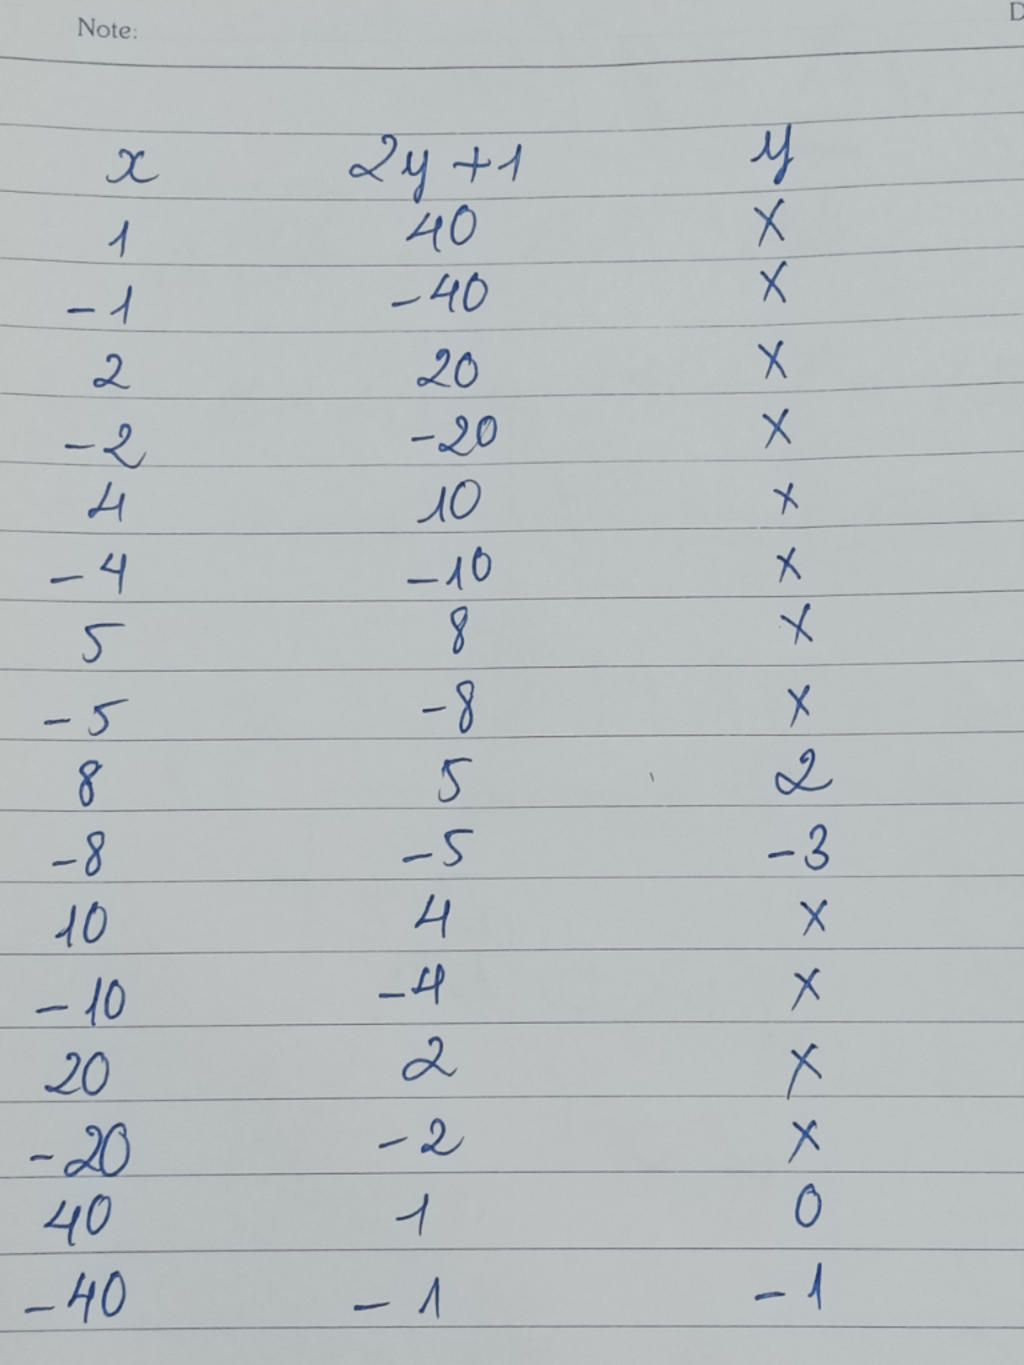 Note: D
x 2y+1 y
1 40 X
-1 -40 X
2 20 X
-2 -20 X
4 10 x
-4 -10 X
5 8 X
-5 -8 X
8 5 2
-8 -5 -3
10 4 X
-10 -4 X
20 2 X
-20 -2 X
40 1 0
-40 -1 -1